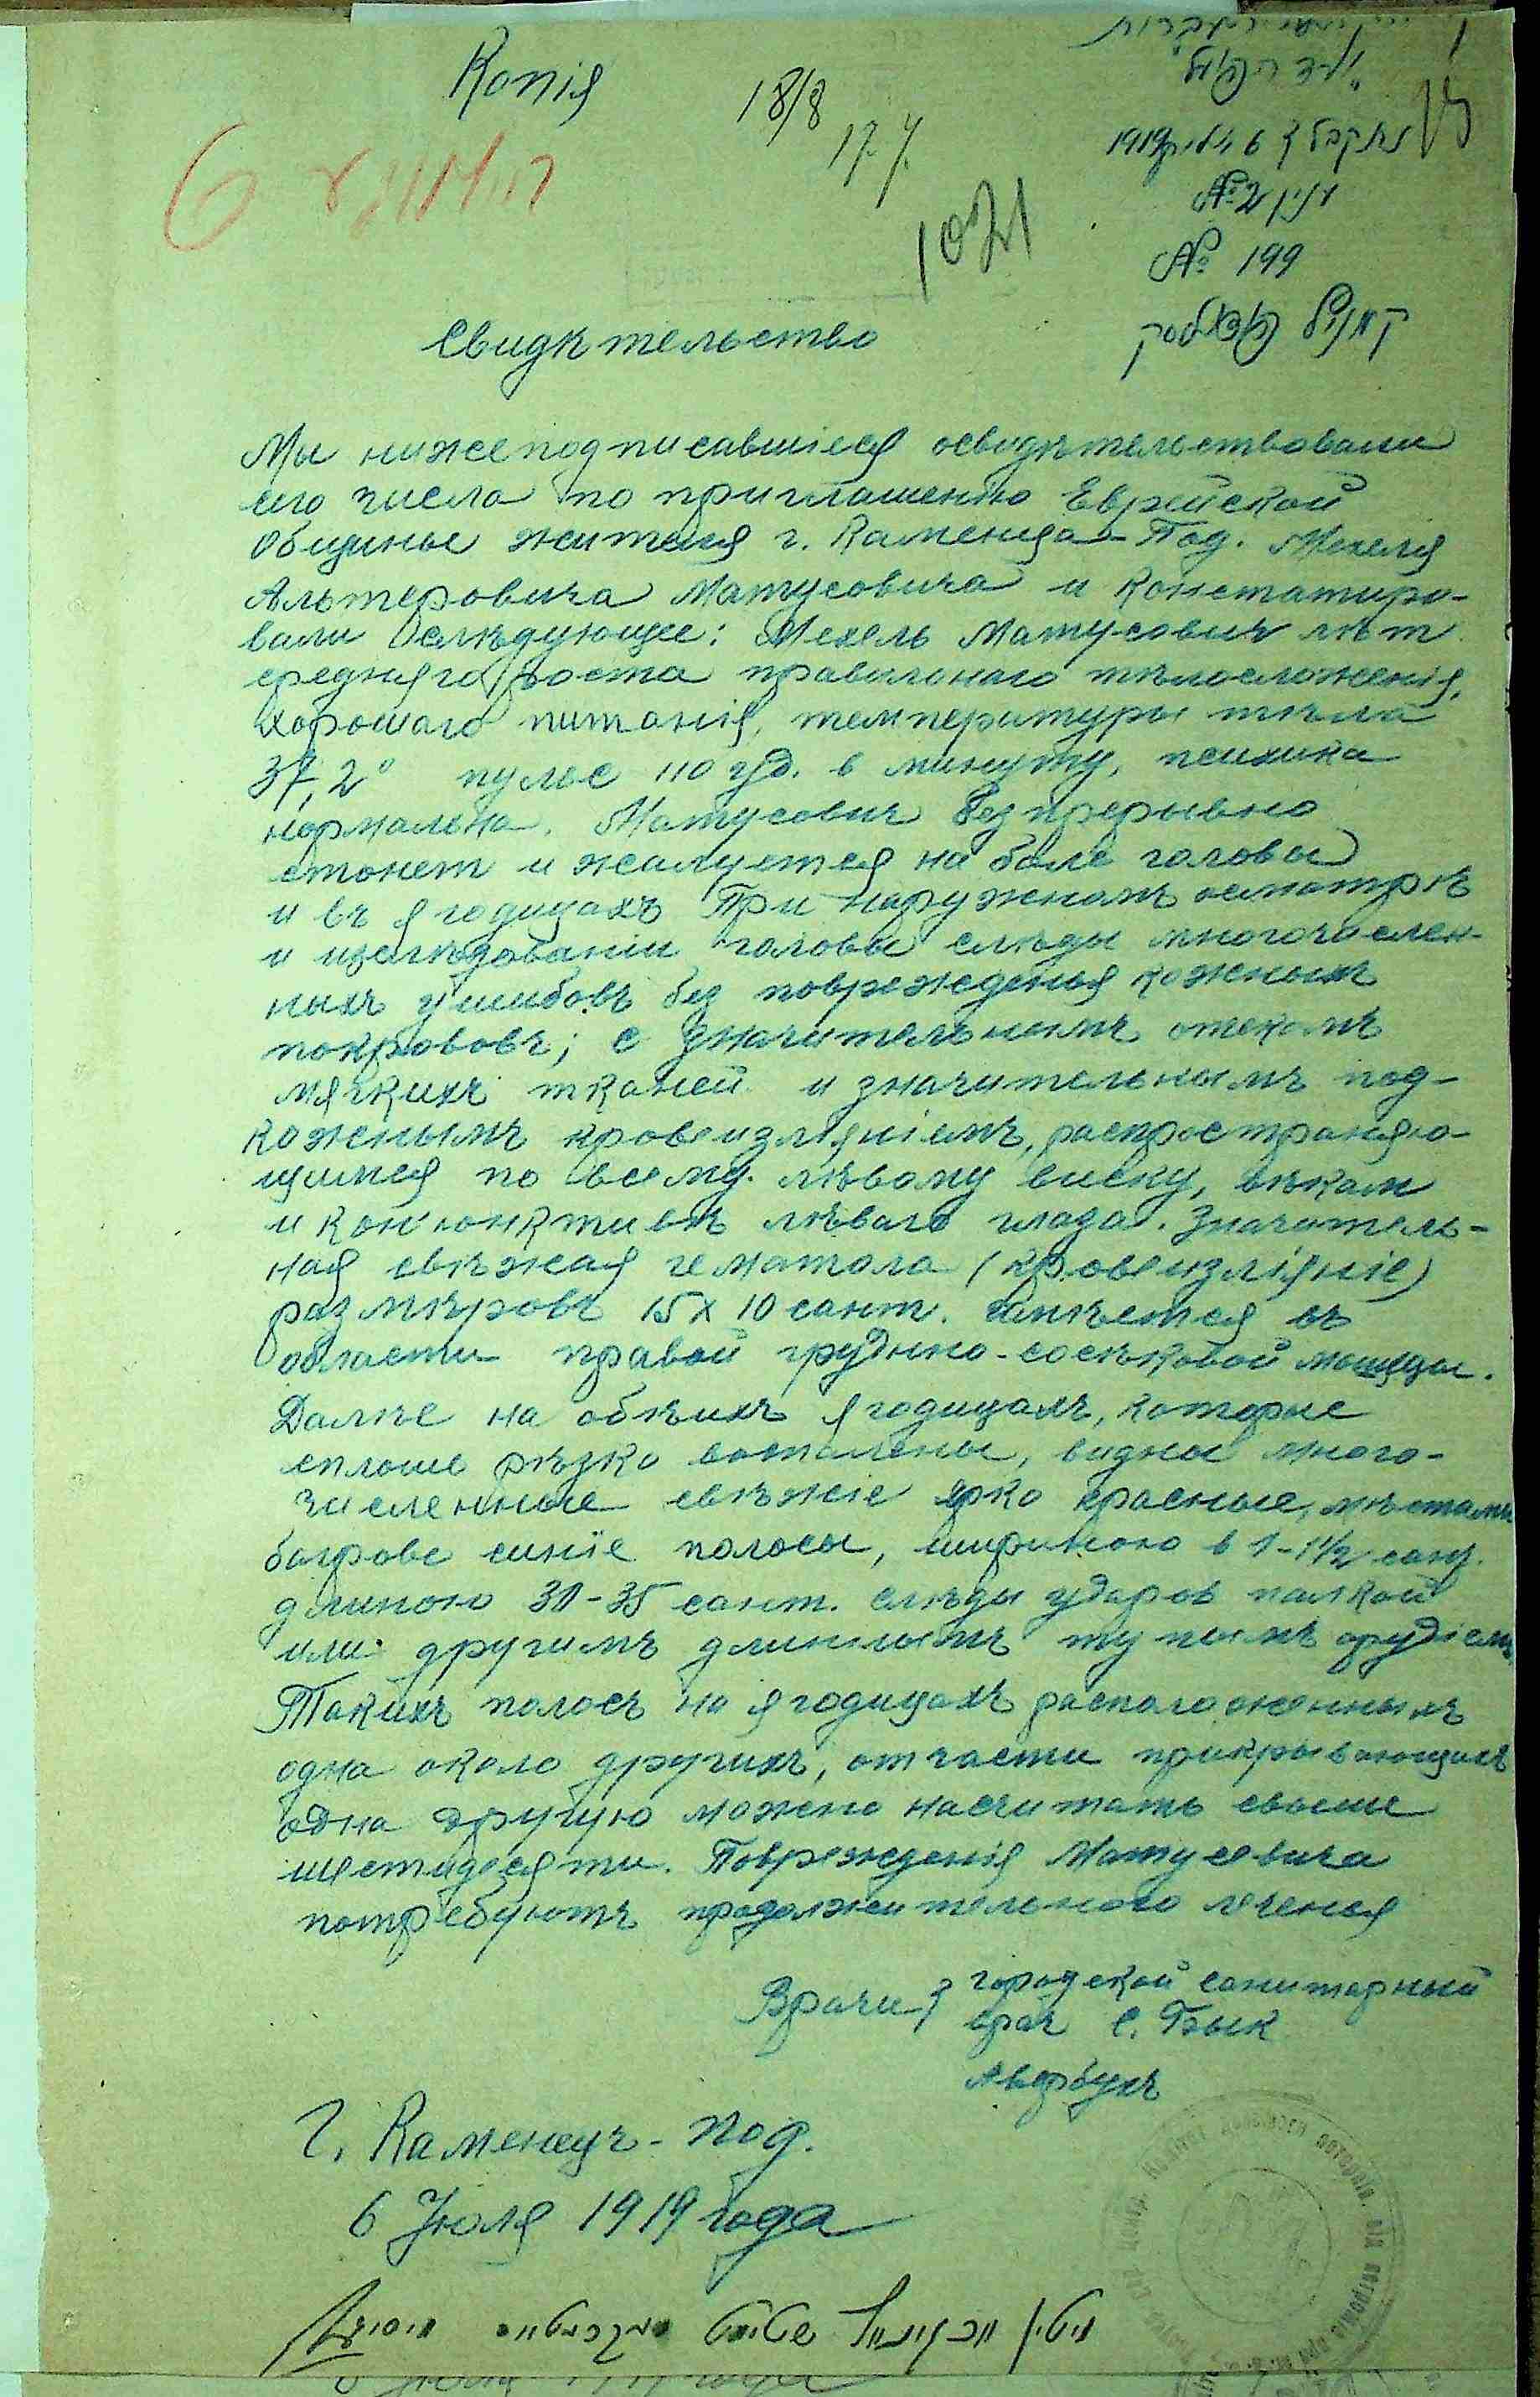 Копія
18/8
17.7
6
1021
נתקבל 6 יולי 1919
ענין №2
№ 199
קמניץ פּאָדאָלסק
Свидѣтельство
Мы нижеподписавшіеся освидѣтельствовали
сего числа по приглашенію Еврейской
Общины жителя г. Каменца-Под. Мехеля
Альтеровича Матусовича и Констатиро-
вали слѣдующее: Мехель Матусович лѣт
средняго роста правильнаго тѣлосложенія,
хорошаго питанія, температуры тѣла
37,2° пульс 110 уд. в минуту, психика
нормальна. Матусович безпрерывно
стонет и жалуется на боле головы
и въ ягодицахъ При наружномъ осмотрѣ
и изслѣдованіи головы слѣды многочислен-
ныхъ ушибовъ без поврежденья кожныхъ
покрововъ; с значительнымъ отекомъ
мягкихъ тканей и значительнымъ под-
кожнымъ кровеизліяніемъ, распространяю-
щимся по всему лѣвому виску, вѣкам
и кон'юнктивѣ лѣваго глаза. Значитель-
ная свѣжая гематома (кровеизліяніе)
размѣровъ 15 х 10 сант. имѣется въ
области правой грудино-сосковой мышцы.
Далѣе на обѣихъ ягодицахъ, которые
сплошь рѣзко воспалены, видны много-
численные свѣжіе ярко красные, мѣстами
багрово синіе полосы, шириною в 1-1½ сант.
длиною 30-35 сант. слѣды ударов палкой
или другимъ длиннымъ тупымъ орудіемъ
Такихъ полосъ на ягодицахъ расположенныхъ
одна около другихъ, отчасти прикрывающихъ
одна другую можно насчитать свыше
шестидесяти. Поврежденія Матусевича
потребуютъ продолжительного леченья
Врачи: городской санитарный
врач С. Бык
Авербухъ
Г. Каменецъ-Под.
6 Іюля 1919 года